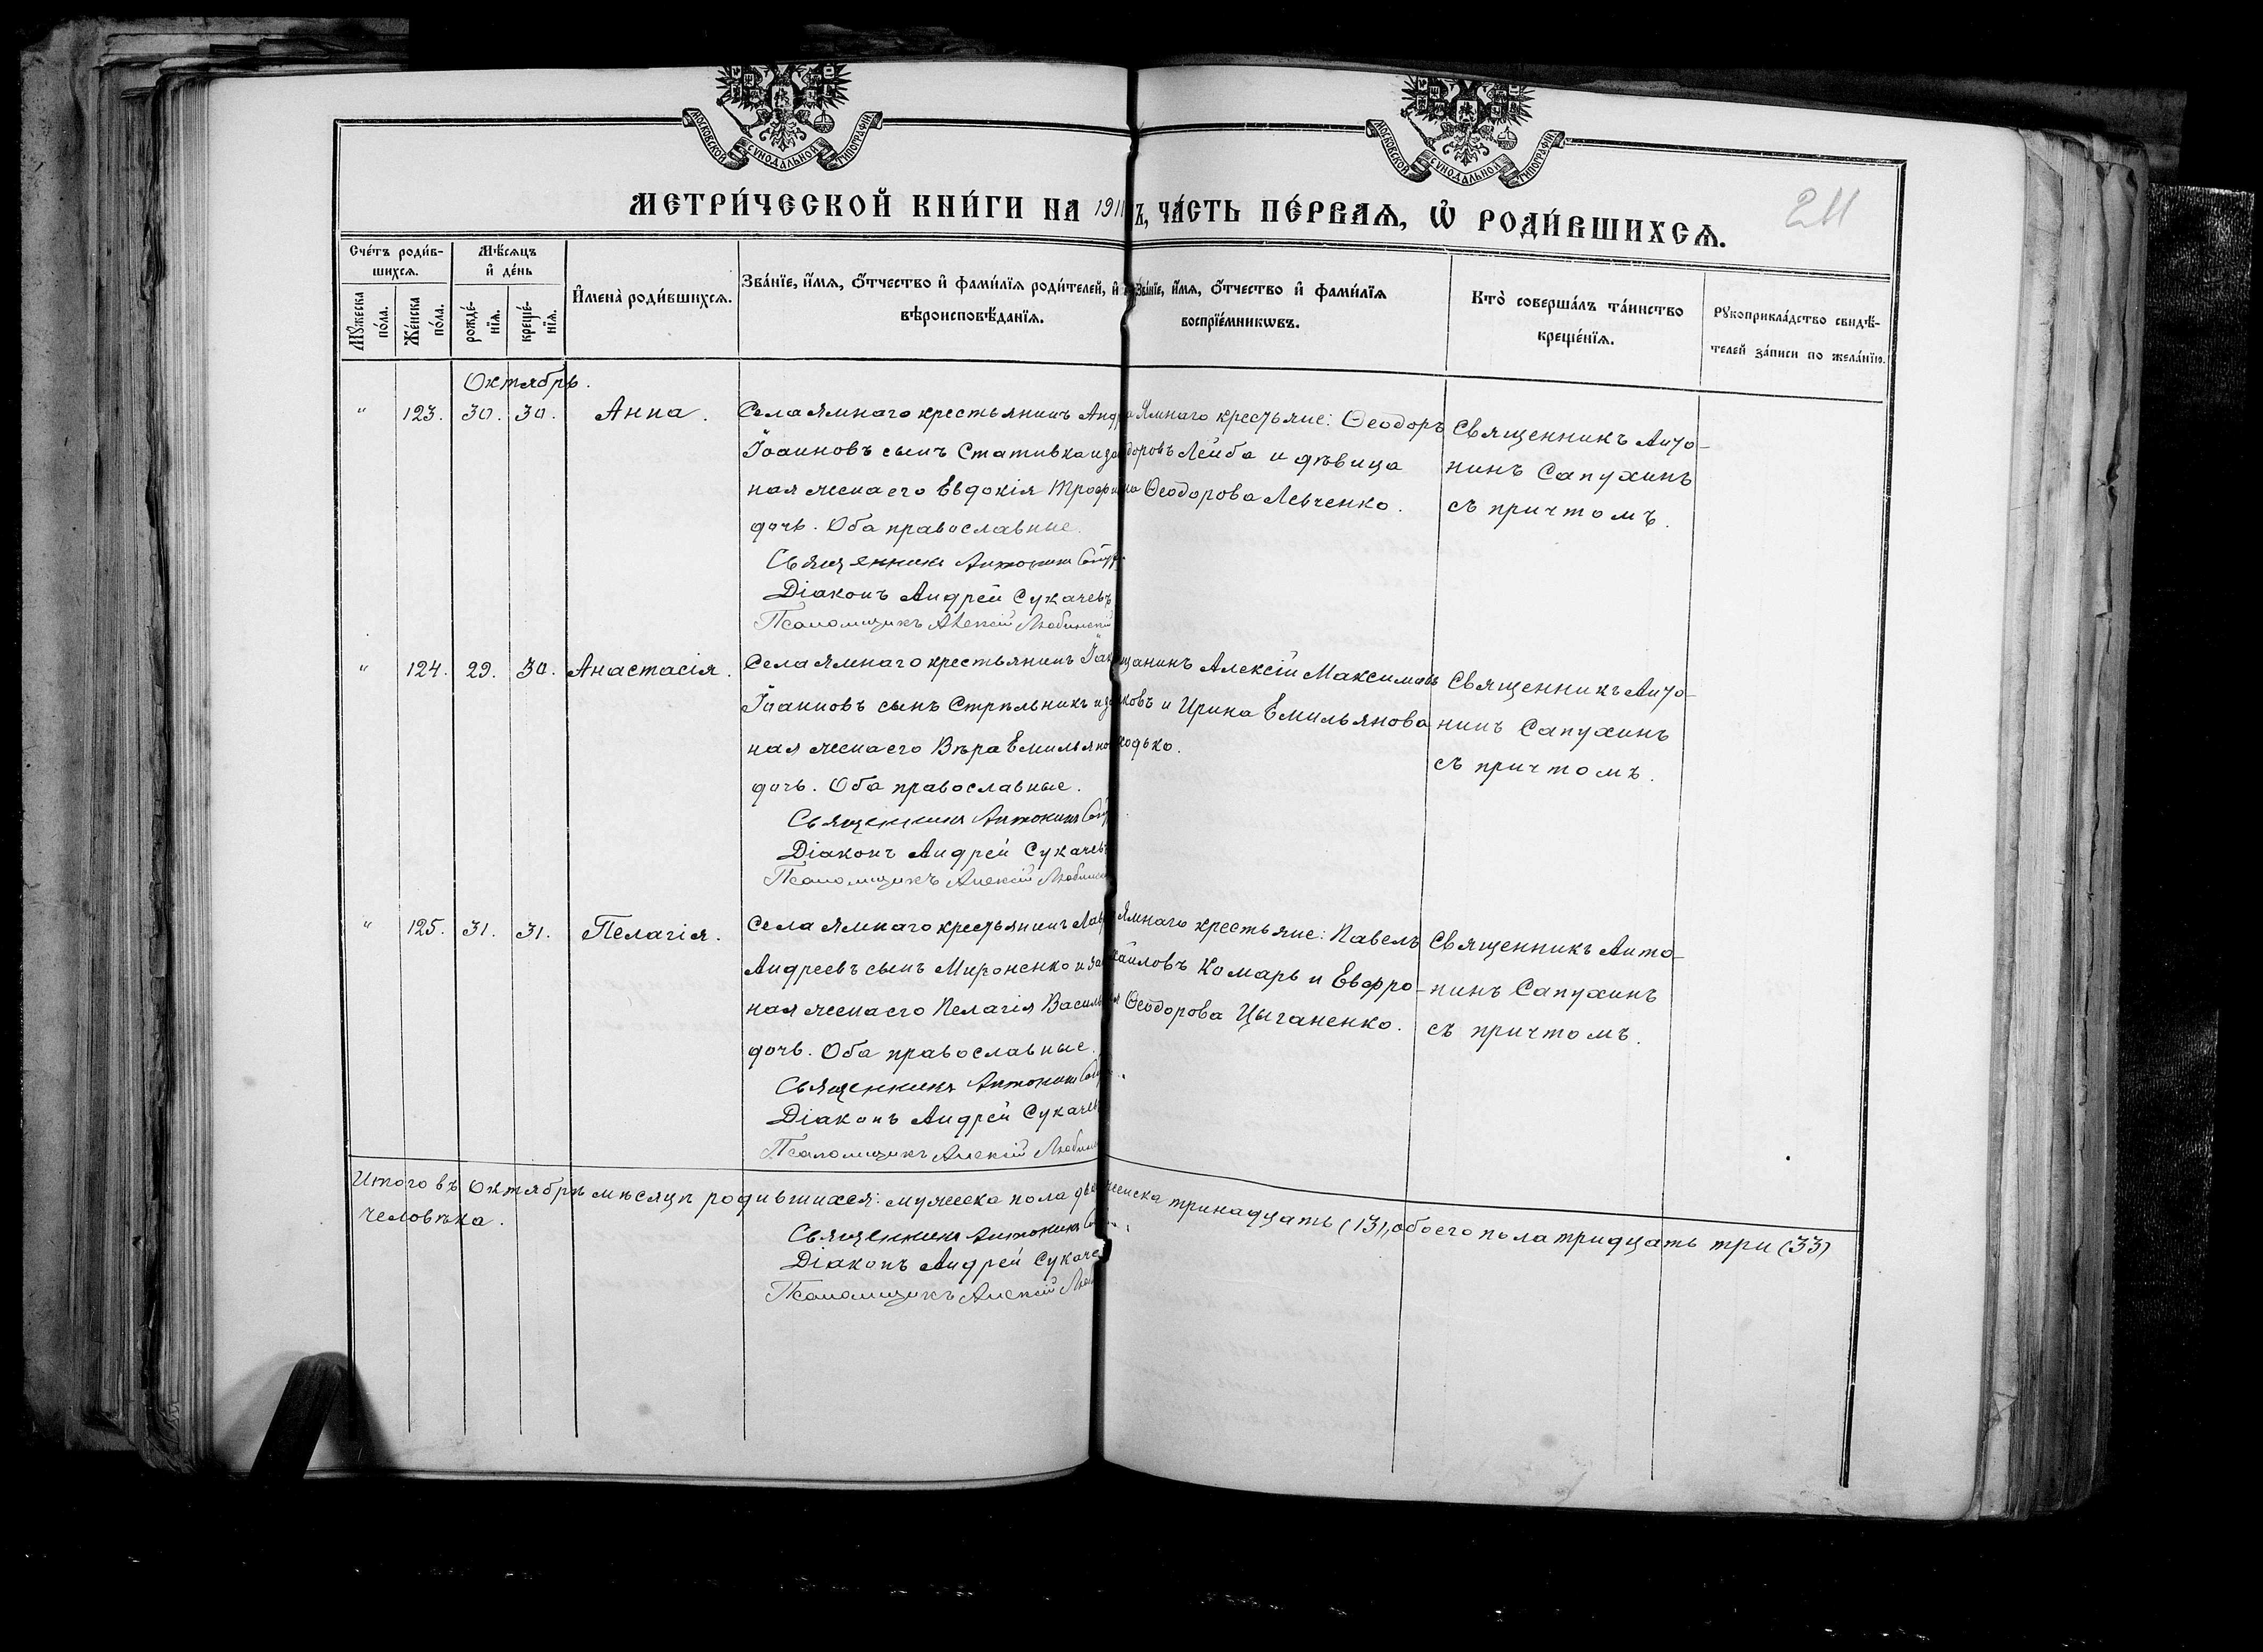 МОСКОВСКОЙ СѴНОДАЛЬНОЙ ТИПОГРАФІИ
МОСКОВСКОЙ СѴНОДАЛЬНОЙ ТИПОГРАФІИ
МЕТРИ́ЧЕСКОЙ КНИ́ГИ НА 1911 Ъ, ЧА́СТЬ ПЕ́РВАѦ, Ѡ҆ РОДИ́ВШИХСѦ.
211
Сче́тъ роди́в-
шихсѧ.
Мѣ́сѧцъ
и҆ де́нь
Мꙋ́жеска
по́ла.
Же́нска
по́ла.
рожде́-
нїѧ.
креще́-
нїѧ.
И҆мена̀ роди́вшихсѧ.
Зва́нїе, и҆́мѧ, ѻ҆́тчество и҆ фами́лїѧ роди́телей, и҆
вѣроисповѣ́данїѧ.
Зва́нїе, и҆́мѧ, ѻ҆́тчество и҆ фами́лїѧ
воспрїе́мникѡвъ.
Кто̀ соверша́лъ та́инство
креще́нїѧ.
Рꙋкоприкла́дство свидѣ́-
телей за́писи по жела́нїю.
Октябрь.
" 123. 30. 30. Анна.
Села Ямнаго крестьянинъ Андр
Іоанновъ сынъ Стативка и зако
ная жена его Евдокія Трофи
дочь. Оба православные.
Священникъ Антонинъ
Діаконъ Андрей Сукачевъ
Псаломщикъ Алексій Любинскій
Ямнаго крестьяне: Ѳеодоръ
доровъ Лейба и дѣвица
Ѳеодорова Левченко.
Священникъ Анто-
нинъ Сапухинъ
съ причтомъ.
" 124. 29. 30. Анастасія.
Села Ямнаго крестьянинъ Іак
Іоанновъ сынъ Стрѣльникъ и за
ная жена его Вѣра Емильяно
дочь. Оба православные.
Священникъ Антонинъ
Діаконъ Андрей Сукачевъ
Псаломщикъ Алексій
щанинъ Алексій Максимовъ
ковъ и Ирина Емильянова
ходько.
Священникъ Анто-
нинъ Сапухинъ
съ причтомъ.
" 125. 31. 31. Пелагія.
Села Ямнаго крестьянинъ Лав
Андреевъ сынъ Мироненко и за
ная жена его Пелагія Василь
дочь. Оба православные.
Священникъ Антонинъ
Діаконъ Андрей Сукачев
Псаломщикъ Алексій
Ямнаго крестьяне: Павелъ
хайловъ Комарь и Евфро-
Ѳеодорова Цыганенко.
Священникъ Анто-
нинъ Сапухинъ
съ причтомъ.
Итого въ Октябрѣ мѣсяцѣ родившихся: мужеска пола два женска тринадцать (13), обоего пола тридцать три (33)
человѣка.
Священникъ Антонинъ
Діаконъ Андрей Сукаче
Псаломщикъ Алексій